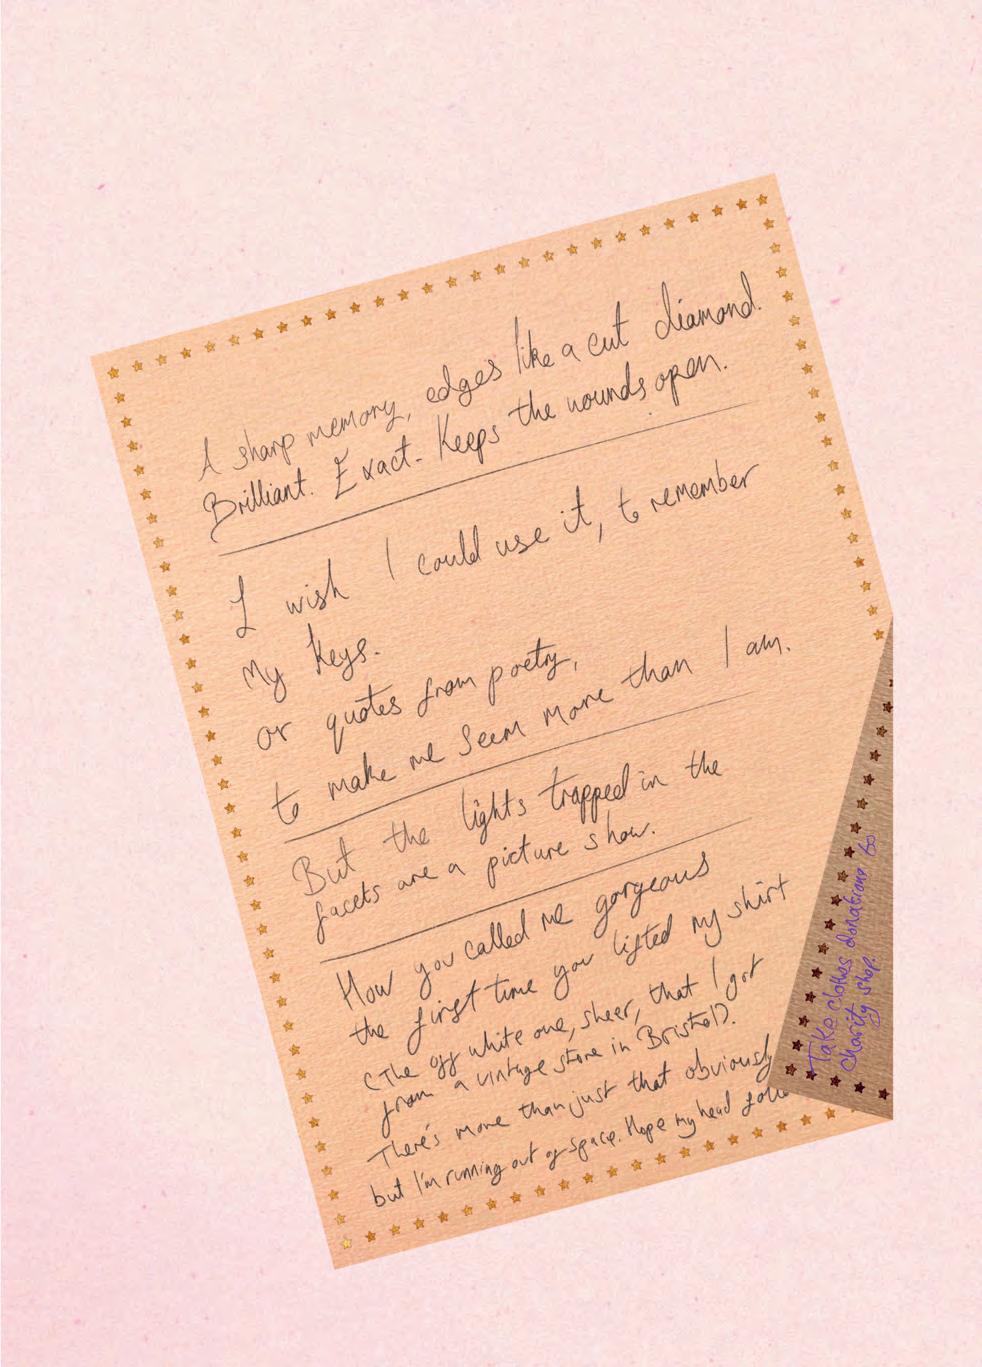 A sharp memory, edges like a cut diamond.
Brilliant. Exact. Keeps the wounds open.
I wish I could use it, to remember
my keys.
or quotes from poetry,
to make me seem more than I am.
But the lights trapped in the
facets are a picture show.
How you called me gorgeous
the first time you lifted my shirt
(The off white one, sheer, that I got
from a vintage store in Bristol).
There's more than just that obviously
but I'm running out of space. Hope my head
Take clothes donations to
Charity shop.